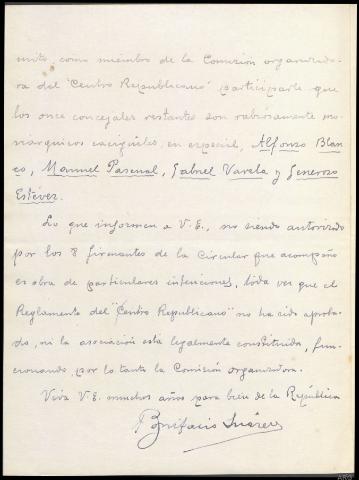 mito, como miembro de la Comisión organizado-
ra del "Centro Republicano" participarle que
los once concejales restantes son rabiosamente mo-
nárquicos caciquiles, en especial, Alfonso Blan-
co, Manuel Pascual, Gabriel Varela y Generoso
Estévez.
Lo que informen a V.E., no siendo autorizado
por los 8 firmantes de la Circular que acompaño
es obra de particulares intenciones, toda vez que el
Reglamento del "Centro Republicano" no ha sido aproba-
do, ni la asociación esta legalmente constituida, fun-
cionando, por lo tanto la Comisión organizadora.
Viva V.E. muchos años para bien de la República
Bonifacio Suárez